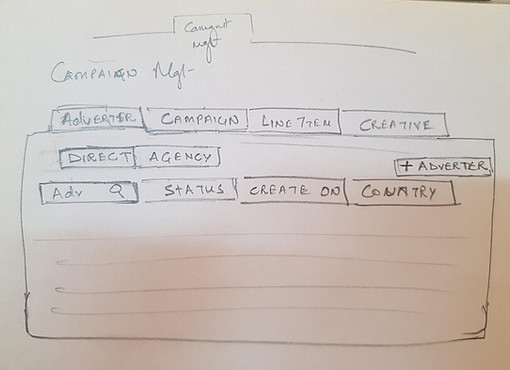 Campgn
Mgt
CAMPAIGN Mgt
ADVERTER CAMPAIGN LINE ITEM CREATIVE
DIRECT AGENCY
+ ADVERTER
Adv STATUS CREATE ON COUNTRY